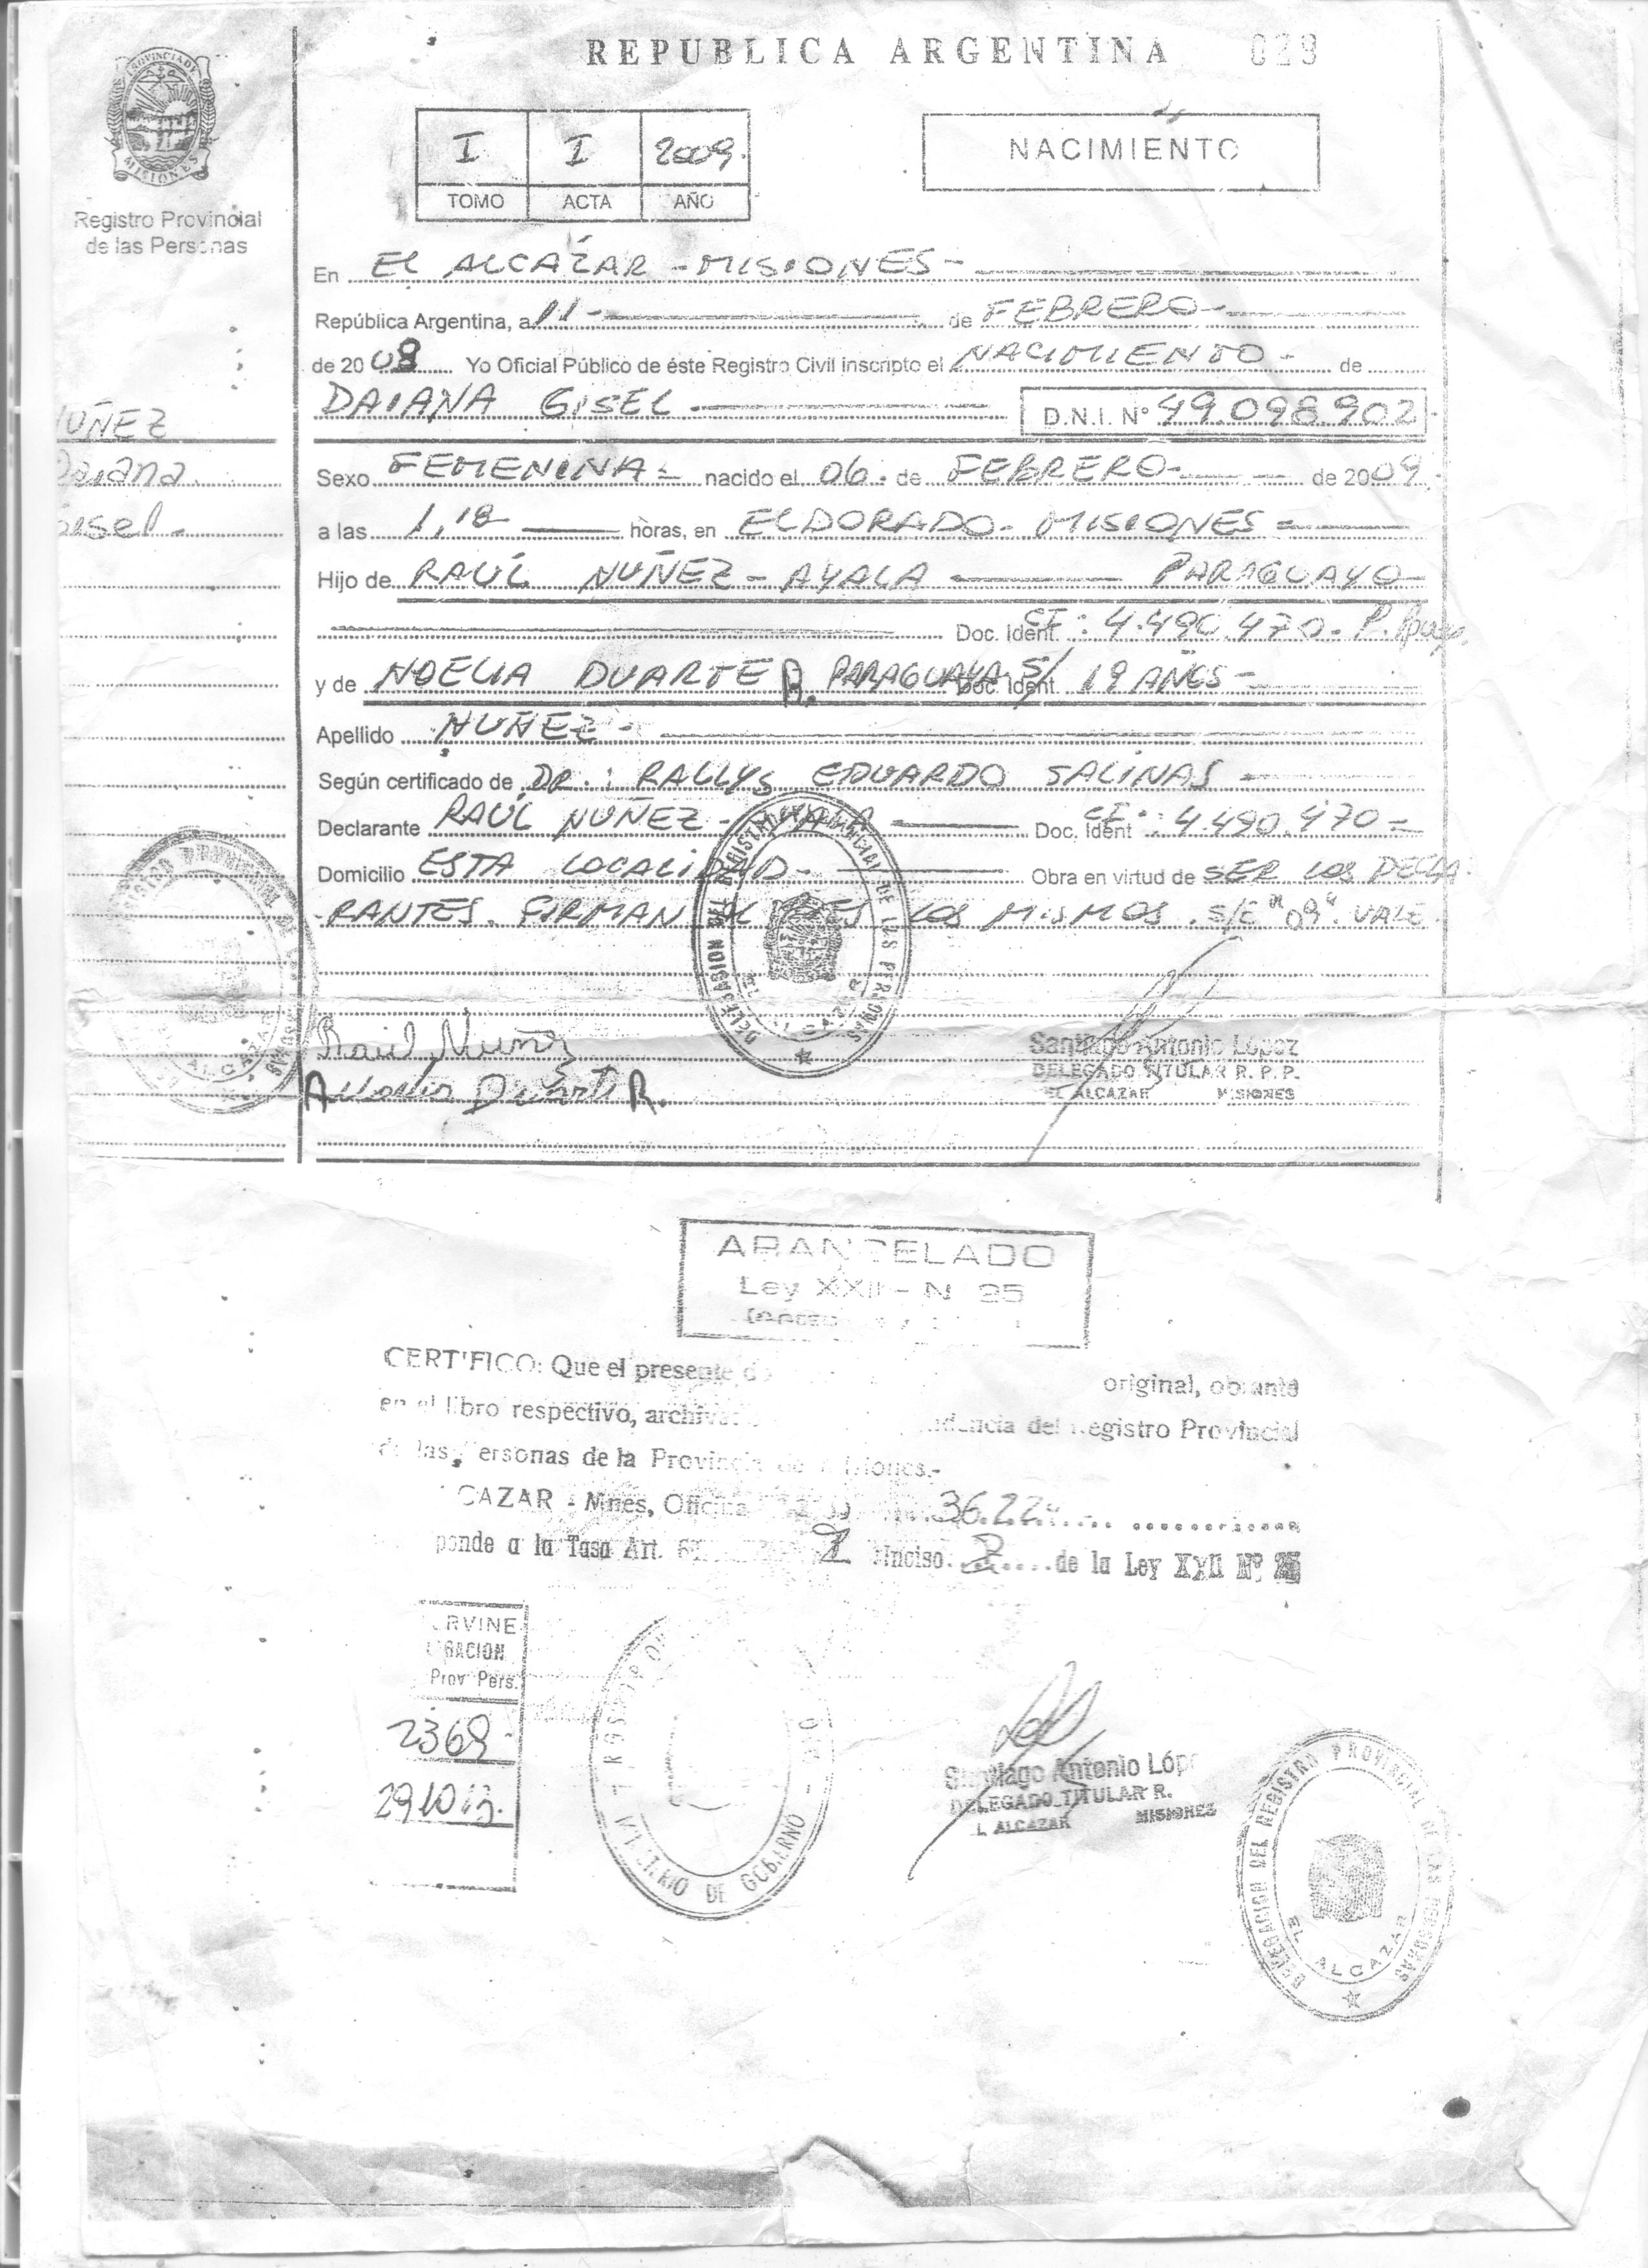 REPUBLICA ARGENTINA 029
PROVINCIA DE
MISIONES
Registro Provincial
de las Personas
I I 2009.
TOMO ACTA AÑO
NACIMIENTO
En EL ALCAZAR - MISIONES -
República Argentina, a 11 - de FEBRERO -
de 2008 Yo Oficial Público de éste Registro Civil inscripto el NACIMIENTO - de
DAIANA GISEL - D.N.I. Nº 49.098.902
UÑEZ
Daiana
Gisel -
Sexo FEMENINA - nacido el 06 . de FEBRERO - de 2009
a las 1,18 horas, en ELDORADO - MISIONES -
Hijo de RAÚL NUÑEZ - AYALA PARAGUAYO -
Doc. Ident. CI: 4.490.470 -
y de NOELIA DUARTE R. PARAGUAYA S/ Doc. Ident. 19 AÑOS -
Apellido NUÑEZ -
Según certificado de DR.: RALLYS EDUARDO SALINAS -
Declarante RAÚL NUÑEZ - AYALA Doc. Ident. CI: 4.490.470 -
Domicilio ESTA LOCALIDAD - Obra en virtud de SER LOS DECLA
RANTES. FIRMAN LOS MISMOS. S/E "09". VALE
DELEGACION DEL REGISTRO PROVINCIAL DE LAS PERSONAS
Raúl Nuñez
Duarte R.
Santiago Antonio López
DELEGADO TITULAR R. P. P.
EL ALCAZAR MISIONES
ARANCELADO
Ley XXII - N 25
CERTIFICO: Que el presente original, obrante
en el libro respectivo, del Registro Provincial
de las Personas de la Provincia de Misiones.-
CAZAR - Mnes, Oficina 36.22
ponde a la Tasa Art. 2 Inciso 2 de la Ley XXII Nº 25
RVINE
GACION
Prov Pers.
2369 -
291013.
MINISTERIO DE GOBIERNO
Santiago Antonio Lópe
DELEGADO TITULAR R.
L ALCAZAR MISIONES
DELEGACION DEL REGISTRO PROVINCIAL DE LAS PERSONAS
EL ALCAZAR